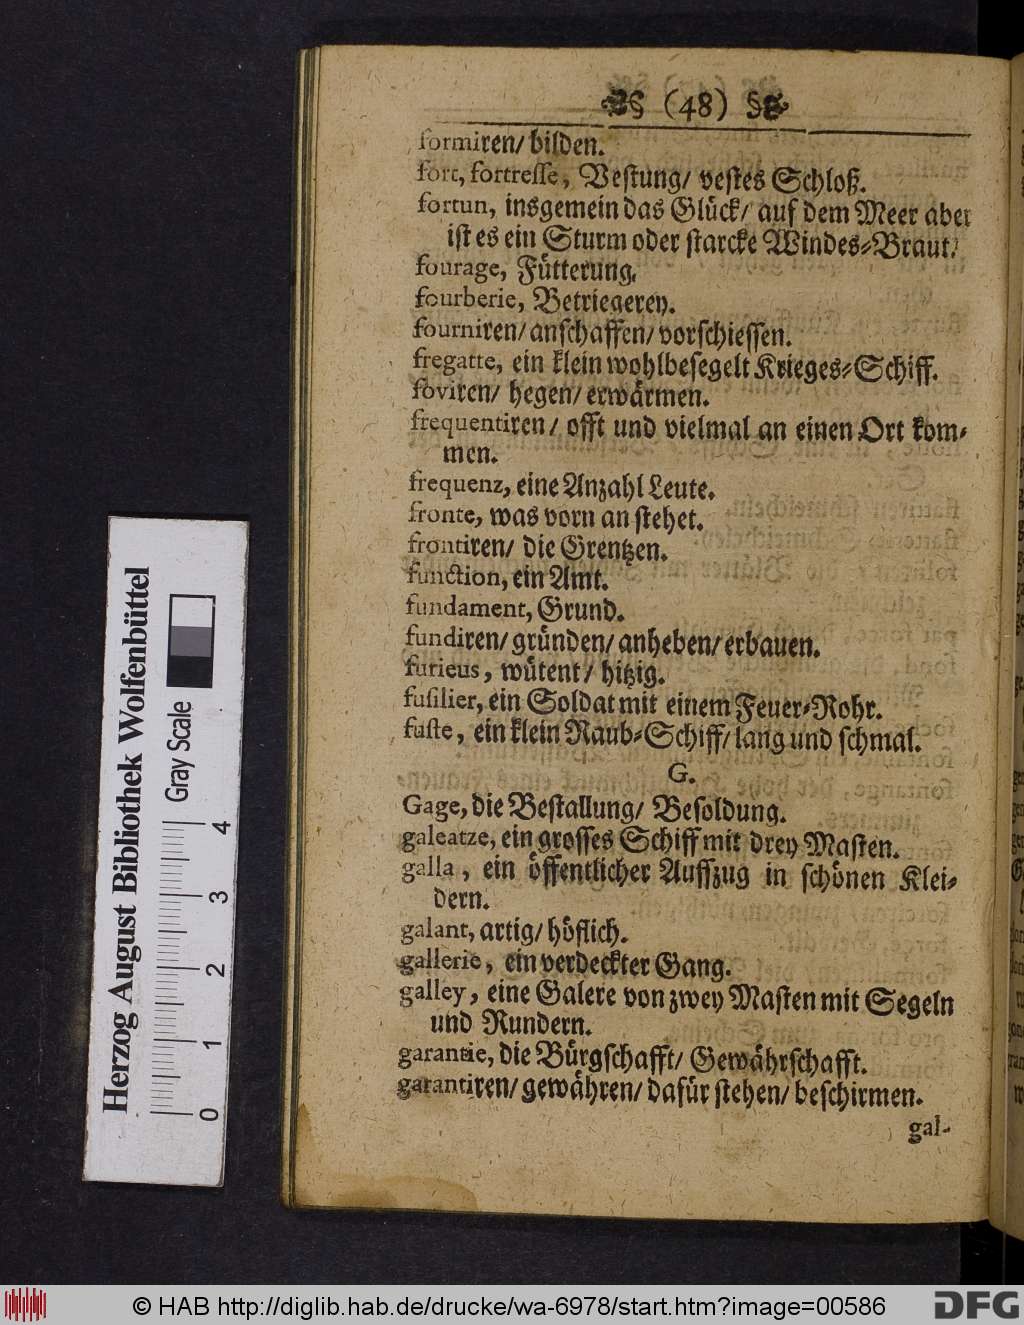 § (48) §
formiren/ bilden.
fort, fortresse, Vestung/ vestes Schloß.
fortun, insgemein das Glück/ auf dem Meer aber
ist es ein Sturm oder starcke Windes-Braut.
fourage, Fütterung.
fourberie, Betriegerey.
fourniren/ anschaffen/ vorschiessen.
fregatte, ein klein wohlbesegelt Krieges-Schiff.
foviren/ hegen/ erwärmen.
frequentiren/ offt und vielmal an einen Ort kom-
men.
frequenz, eine Anzahl Leute.
fronte, was vorn an stehet.
frontiren/ die Grentzen.
function, ein Amt.
fundament, Grund.
fundiren/ gründen/ anheben/ erbauen.
furieus, wütent/ hitzig.
fusilier, ein Soldat mit einem Feuer-Rohr.
fuste, ein klein Raub-Schiff/ lang und schmal.
G.
Gage, die Bestallung/ Besoldung.
galeatze, ein grosses Schiff mit drey Masten.
galla, ein öffentlicher Auffzug in schönen Klei-
dern.
galant, artig/ höflich.
gallerie, ein verdeckter Gang.
galley, eine Galere von zwey Masten mit Segeln
und Rundern.
garantie, die Bürgschafft/ Gewährschafft.
garantiren/ gewähren/ dafür stehen/ beschirmen.
gal-
Herzog August Bibliothek Wolfenbüttel
Gray Scale
0 1 2 3 4
© HAB http://diglib.hab.de/drucke/wa-6978/start.htm?image=00586
DFG